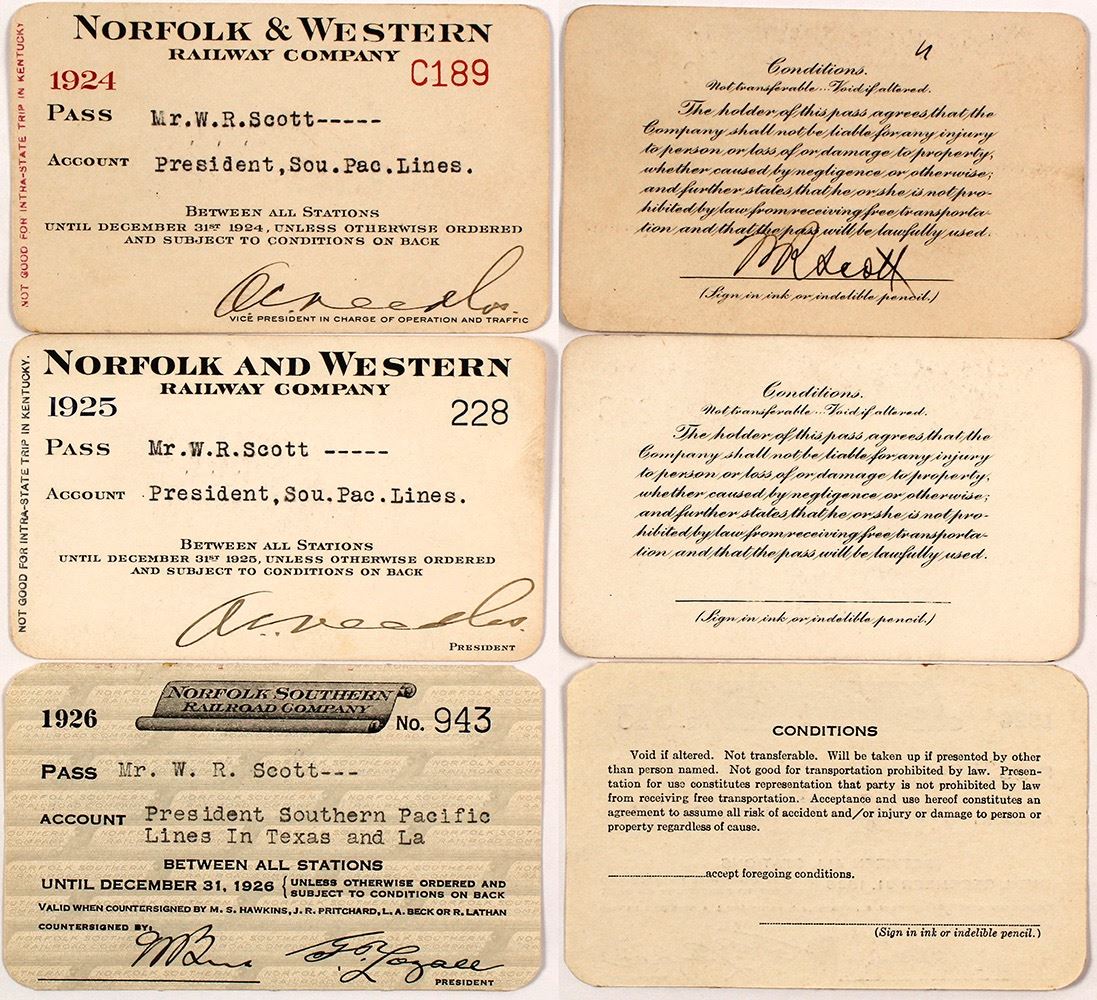 NORFOLK & WESTERN
RAILWAY COMPANY
1924
C189
PASS Mr.W.R.Scott-----
ACCOUNT President,Sou.Pac.Lines.
BETWEEN ALL STATIONS
UNTIL DECEMBER 31ST 1924, UNLESS OTHERWISE ORDERED
AND SUBJECT TO CONDITIONS ON BACK
VICE PRESIDENT IN CHARGE OF OPERATION AND TRAFFIC
NOT GOOD FOR INTRA-STATE TRIP IN KENTUCKY
Conditions.
Not transferable...Void if altered.
The holder of this pass agrees that the
Company shall not be liable for any injury
to person or loss of or damage to property,
whether caused by negligence or otherwise;
and further states that he or she is not pro-
hibited by law from receiving free transporta-
tion and that the pass will be lawfully used.
WR Scott
(Sign in ink or indelible pencil.)
NORFOLK AND WESTERN
RAILWAY COMPANY
1925
228
PASS Mr.W.R.Scott -----
ACCOUNT President,Sou.Pac.Lines.
BETWEEN ALL STATIONS
UNTIL DECEMBER 31ST 1925, UNLESS OTHERWISE ORDERED
AND SUBJECT TO CONDITIONS ON BACK
PRESIDENT
NOT GOOD FOR INTRA-STATE TRIP IN KENTUCKY.
Conditions.
Not transferable...Void if altered.
The holder of this pass agrees that the
Company shall not be liable for any injury
to person or loss of or damage to property,
whether caused by negligence or otherwise;
and further states that he or she is not pro-
hibited by law from receiving free transporta-
tion and that the pass will be lawfully used.
(Sign in ink or indelible pencil.)
NORFOLK SOUTHERN
RAILROAD COMPANY
1926
No. 943
PASS Mr. W. R. Scott---
ACCOUNT President Southern Pacific
Lines In Texas and La
BETWEEN ALL STATIONS
UNTIL DECEMBER 31, 1926 { UNLESS OTHERWISE ORDERED AND
SUBJECT TO CONDITIONS ON BACK
VALID WHEN COUNTERSIGNED BY M. S. HAWKINS, J. R. PRITCHARD, L. A. BECK OR R. LATHAN
COUNTERSIGNED BY:
PRESIDENT
CONDITIONS
Void if altered. Not transferable. Will be taken up if presented by other
than person named. Not good for transportation prohibited by law. Presen-
tation for use constitutes representation that party is not prohibited by law
from receiving free transportation. Acceptance and use hereof constitutes an
agreement to assume all risk of accident and/or injury or damage to person or
property regardless of cause.
accept foregoing conditions.
(Sign in ink or indelible pencil.)